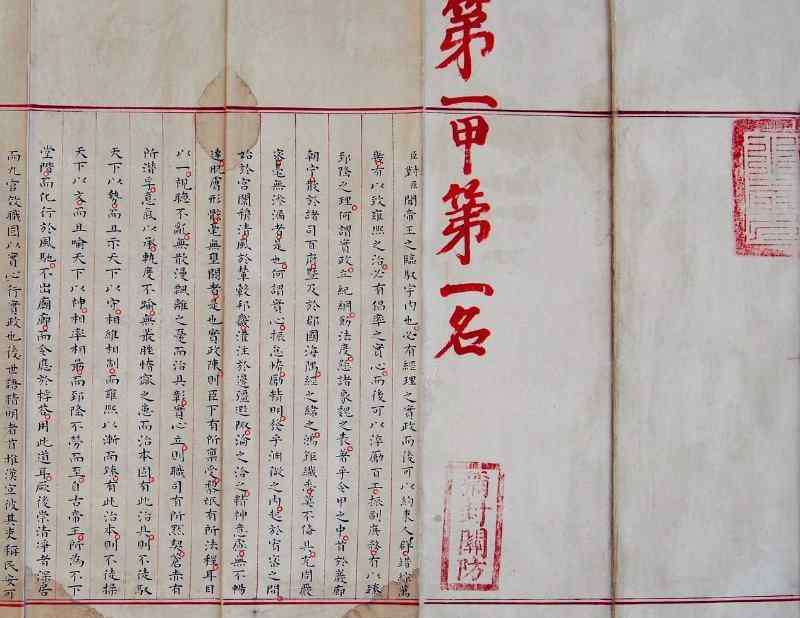 第一甲第一名
彌封關防
臣對臣聞帝王之臨馭宇內也必有經理之實政而後可以約束人群錯綜萬
機有以致雍熙之治必有倡率之實心而後可以淬勵百工振刷庶務有以臻
郅隆之理何謂實政立紀綱飭法度懸諸象魏之表著乎令甲之中首於巖廊
朝宁散於諸司百府暨及於郡國海隅經之緯之鴻鉅纖悉莫不備具充周嚴
密毫無滲漏者是也何謂實心振怠惰勵精明發乎淵微之內起於宥密之間
始於宮闈穆清風於輦轂邦畿灌注於邊疆遐陬淪之洽之精神意慮無不暢
達肌膚形骸毫無壅閼者是也實政陳則臣下有所稟受黎氓有所法程耳目
以一視聽不亂無散漫飄離之憂而治具彰實心立則職司有所默契蒼赤有
所潛孚意氣以承軌度不踰無叢脞惰窳之患而治本固有此治具則不徒馭
天下以勢而且示天下以守相維相制而雍熙以漸而臻有此治本則不徒操
天下以文而且喻天下以神相率相勗而郅隆不勞而至自古帝王所為不下
堂階而化行於風馳不出廟廊而令應於桴答用此道耳厥後崇清淨者深居
而九官效職固以實心行實政也後世語精明者首推漢宣彼其吏稱民安可